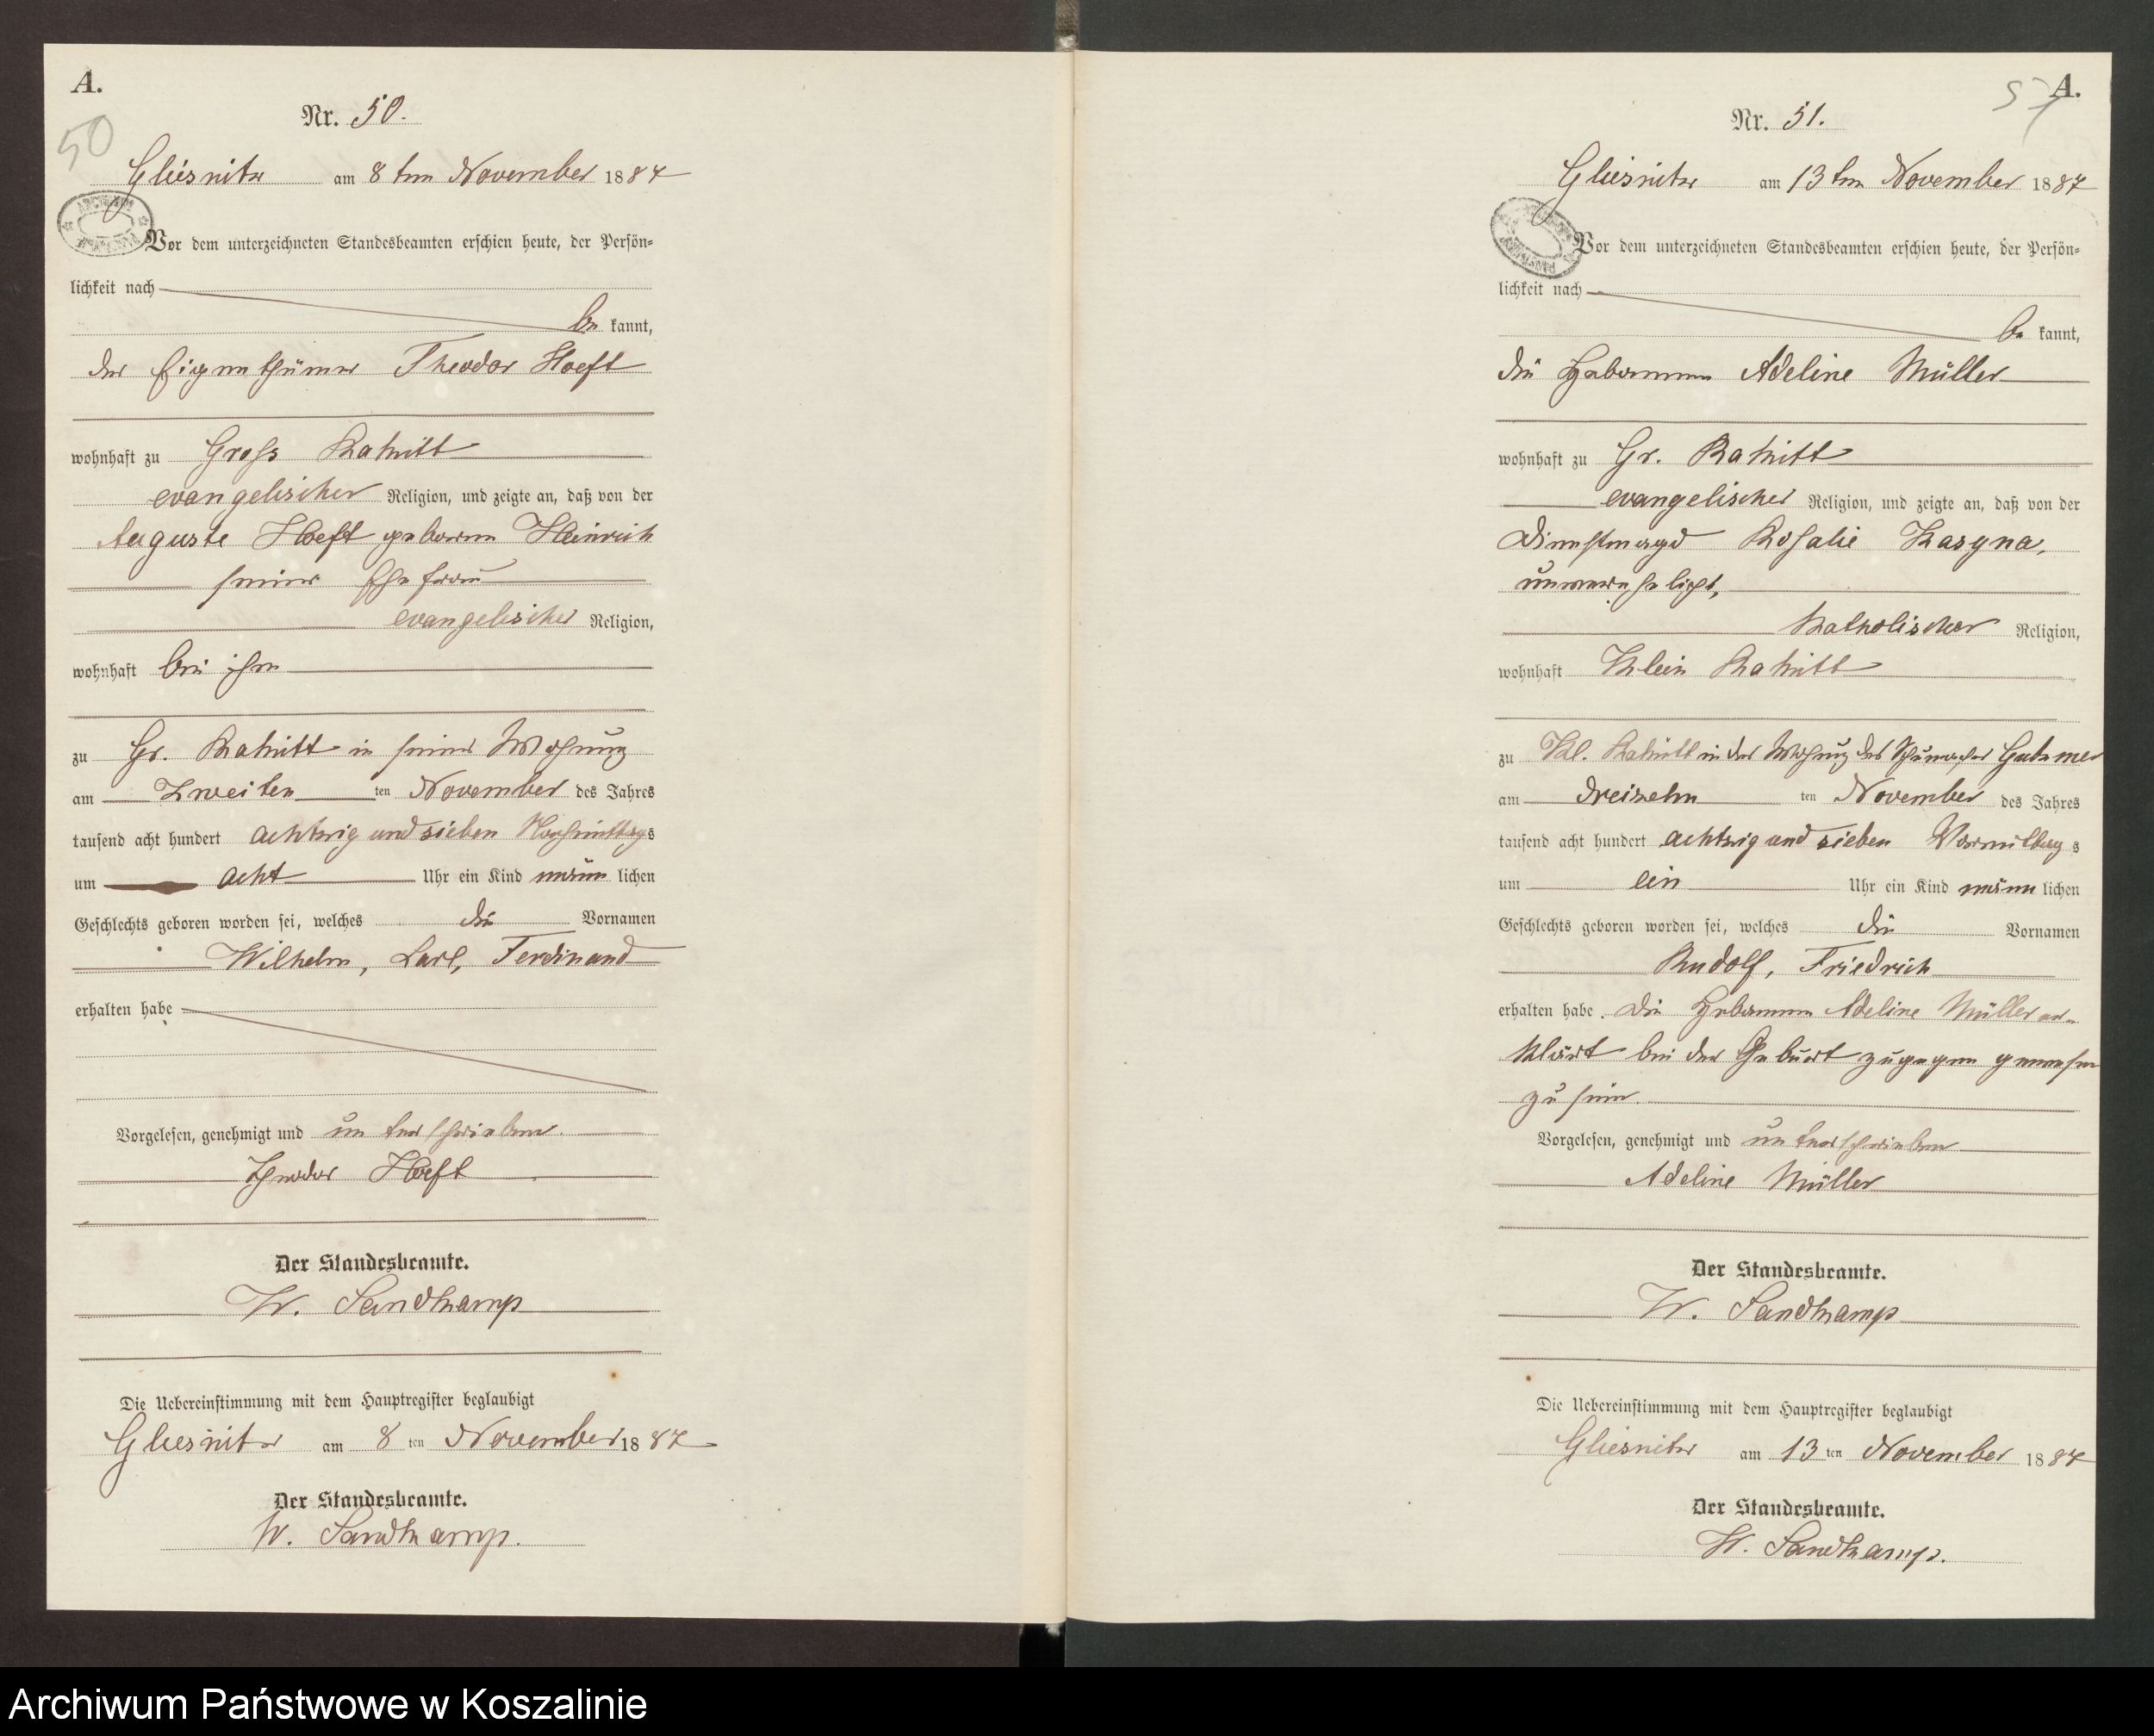 A.
50
Nr. 50.
Gliesnitz am 8ten November 1887
Vor dem unterzeichneten Standesbeamten erschien heute, der Persön=
lichkeit nach
be kannt,
der Eigenthümer Theodor Hoeft
wohnhaft zu Gross Ratnitt
evangelischer Religion, und zeigte an, daß von der
Auguste Hoeft geborene Heinrich
seiner Ehefrau
evangelischer Religion,
wohnhaft bei ihm
zu Gr. Ratnitt in seiner Wohnung
am Zweiten ten November des Jahres
tausend acht hundert achtzig und sieben Nachmittags
um acht Uhr ein Kind männ lichen
Geschlechts geboren worden sei, welches die Vornamen
Wilhelm, Carl, Ferdinand
erhalten habe
Vorgelesen, genehmigt und unterschrieben
Theodor Hoeft
Der Standesbeamte.
W. Sandkamp
Die Uebereinstimmung mit dem Hauptregister beglaubigt
Gliesnitz am 8 ten November 1887
Der Standesbeamte.
W. Sandkamp.
A.
51
Nr. 51.
Gliesnitz am 13ten November 1887
Vor dem unterzeichneten Standesbeamten erschien heute, der Persön=
lichkeit nach
be kannt,
die Hebamme Adeline Müller
wohnhaft zu Gr. Ratnitt
evangelischer Religion, und zeigte an, daß von der
Dienstmagd Rosalie Kasyna,
unverehelicht,
Katholischer Religion,
wohnhaft Klein Ratnitt
zu Kl. Ratnitt in der Wohnung des Schumacher Gutzmer
am dreizehn ten November des Jahres
tausend acht hundert achtzig und sieben Vormittag s
um ein Uhr ein Kind männ lichen
Geschlechts geboren worden sei, welches die Vornamen
Rudolf, Friedrich
erhalten habe. Die Hebamme Adeline Müller er=
klärt bei der Geburt zugegen gewesen
zu sein.
Vorgelesen, genehmigt und unterschrieben
Adeline Müller
Der Standesbeamte.
W. Sandkamp
Die Uebereinstimmung mit dem Hauptregister beglaubigt
Gliesnitz am 13 ten November 1887
Der Standesbeamte.
W. Sandkamp.
Archiwum Państwowe w Koszalinie